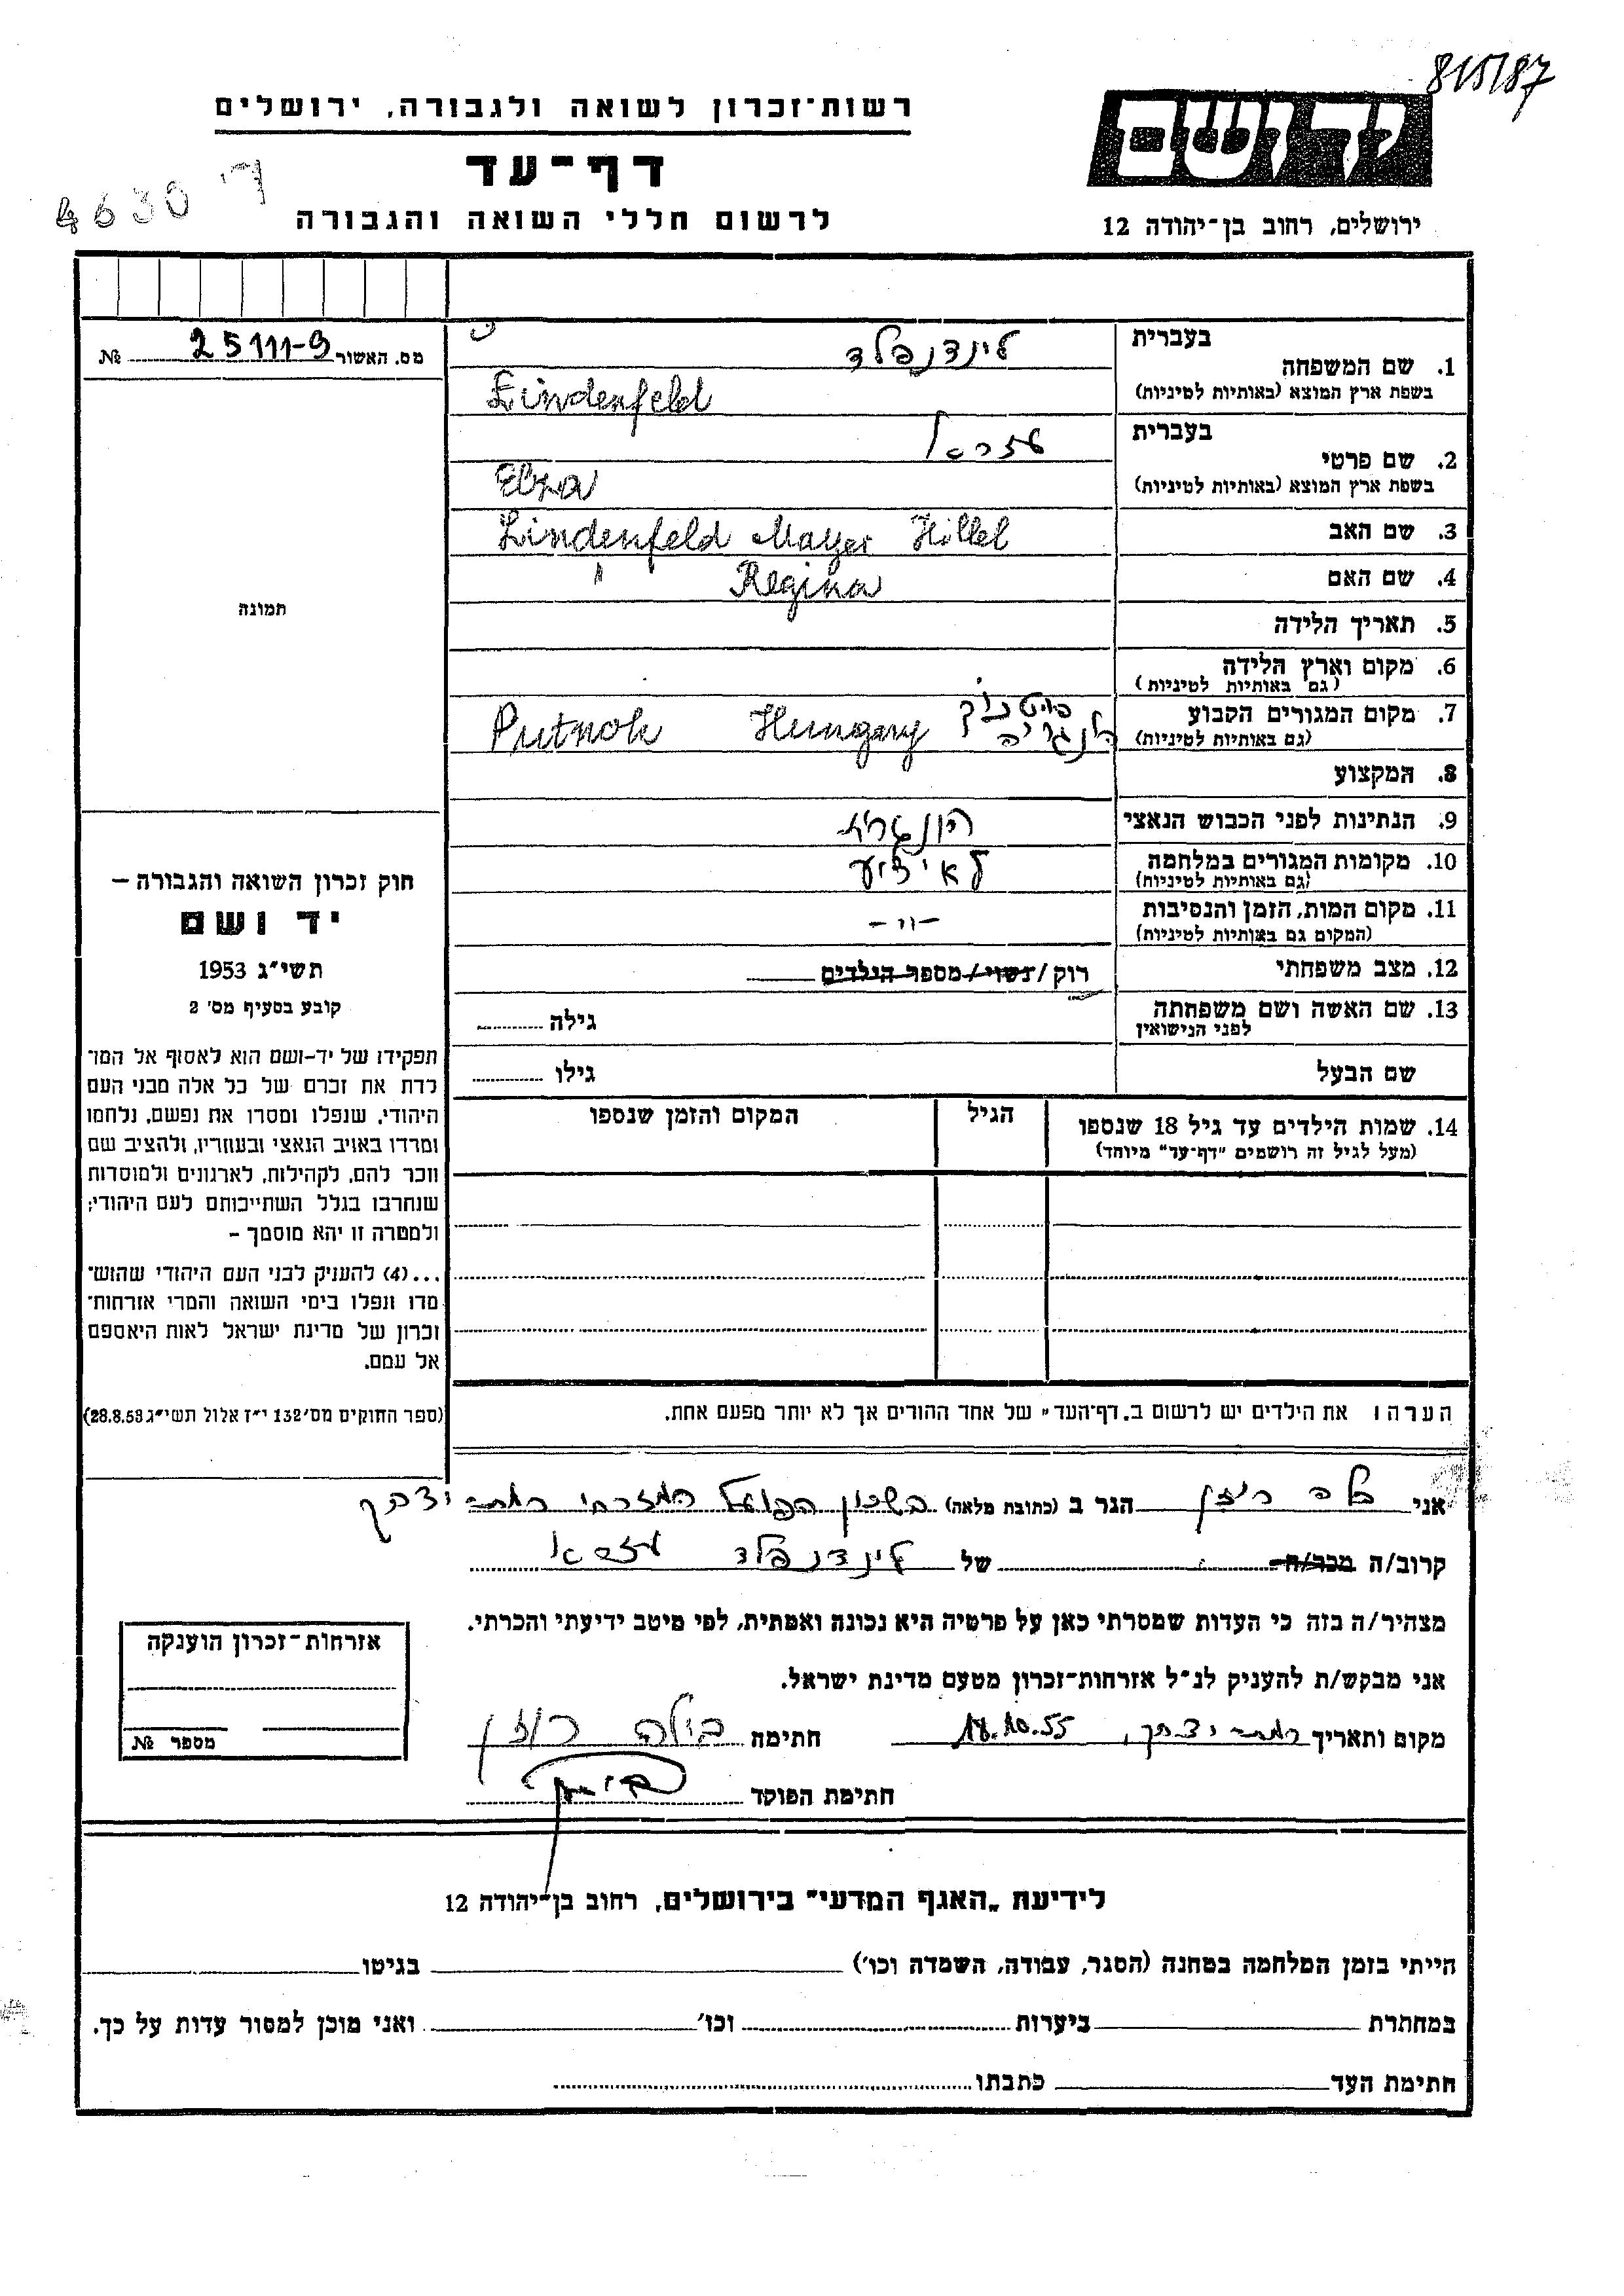 815187
רשות־זכרון לשואה ולגבורה, ירושלים
יד ושם
דף־עד
4630 ד'
לרשום חללי השואה והגבורה
ירושלים, רחוב בן־יהודה 12
מס. האשור 25111-9 №
תמונה
חוק זכרון השואה והגבורה –
יד ושם
תשי״ג 1953
קובע בסעיף מס׳ 2
תפקידו של יד-ושם הוא לאסוף אל המו־
לדת את זכרם של כל אלה מבני העם
היהודי, שנפלו ומסרו את נפשם, נלחמו
ומרדו באויב הנאצי ובעוזריו, ולהציב שם
וזכר להם, לקהילות, לארגונים ולמוסדות
שנחרבו בגלל השתייכותם לעם היהודי;
ולמטרה זו יהא מוסמך –
...(4) להעניק לבני העם היהודי שהוש־
מדו ונפלו בימי השואה והמרי אזרחות־
זכרון של מדינת ישראל לאות היאספם
אל עמם.
(ספר החוקים מס׳ 132 י״ז אלול תשי״ג 28.8.53)
בעברית לינדנפלד
1. שם המשפחה
בשפת ארץ המוצא (באותיות לטיניות) Lindenfeld
בעברית עזראל
2. שם פרטי
בשפת ארץ המוצא (באותיות לטיניות)
3. שם האב Lindenfeld Mayer Hillel
4. שם האם " Regina
5. תאריך הלידה
6. מקום וארץ הלידה
(גם באותיות לטיניות)
7. מקום המגורים הקבוע פוטנוק הונגריה Putnok Hungary
(גם באותיות לטיניות)
8. המקצוע
9. הנתינות לפני הכבוש הנאצי הונגרית
10. מקומות המגורים במלחמה לא ידוע
(גם באותיות לטיניות)
11. מקום המות, הזמן והנסיבות -"-
(המקום גם באותיות לטיניות)
12. מצב משפחתי רוק / נשוי / מספר הילדים
13. שם האשה ושם משפחתה גילה
לפני הנישואין
שם הבעל גילו
14. שמות הילדים עד גיל 18 שנספו הגיל המקום והזמן שנספו
(מעל לגיל זה רושמים "דף־עד" מיוחד)
הערה: את הילדים יש לרשום ב„דף־העד" של אחד ההורים אך לא יותר מפעם אחת.
אני הגר ב (כתובת מלאה) בשכון הפועל המזרחי רמת יצחק
קרוב/ה מכר/ה של לינדנפלד עזראל
מצהיר/ה בזה כי העדות שמסרתי כאן על פרטיה היא נכונה ואמתית, לפי מיטב ידיעתי והכרתי.
אני מבקש/ת להעניק לנ״ל אזרחות־זכרון מטעם מדינת ישראל.
מקום ותאריך רמת יצחק, 18.10.55 חתימה בילה רוזן
חתימת הפוקד
אזרחות־זכרון הוענקה
מספר №
לידיעת „האגף המדעי" בירושלים, רחוב בן־יהודה 12
הייתי בזמן המלחמה במחנה (הסגר, עבודה, השמדה וכו׳) בגיטו
במחתרת ביערות וכו׳ ואני מוכן למסור עדות על כך.
חתימת העד כתבתו